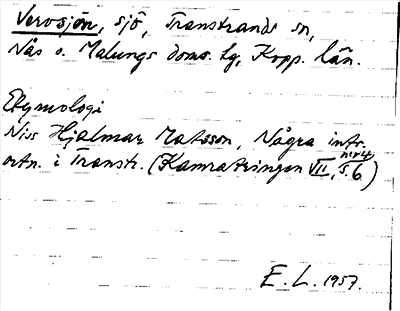 Vervsjön, sjö, Transtrands sn,
Nås o. Malungs doms. tg, Kopp. län.
Etymologi
Niss Hjalmar Matsson, Några intr.
ortn. i Transtr. (Kamratringen VII, nr 4, s. 6)
E. L. 1957.